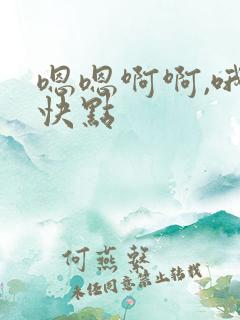 嗯嗯啊啊,哦
快點
何燕馨
未经同意禁止转载